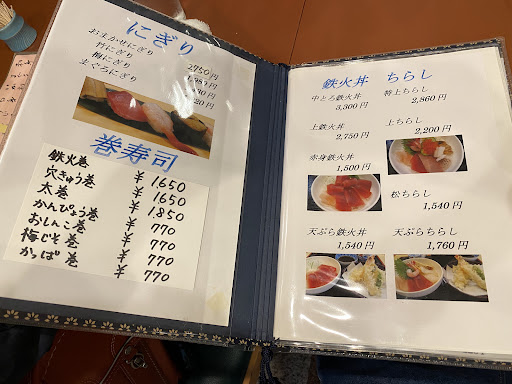 にぎり
おまかせにぎり 2750円
竹にぎり
梅にぎり
まぐろにぎり
巻寿司
鉄火巻 ¥1650
穴きゅう巻 ¥1650
太巻 ¥1850
かんぴょう巻 ¥770
おしんこ巻 ¥770
梅じそ巻 ¥770
かっぱ巻 ¥770
鉄火丼 ちらし
中とろ鉄火丼
3,300円
特上ちらし
2,860円
上鉄火丼
2,750円
上ちらし
2,200円
赤身鉄火丼
1,500円
松ちらし
1,540円
天ぷら鉄火丼
1,540円
天ぷらちらし
1,760円